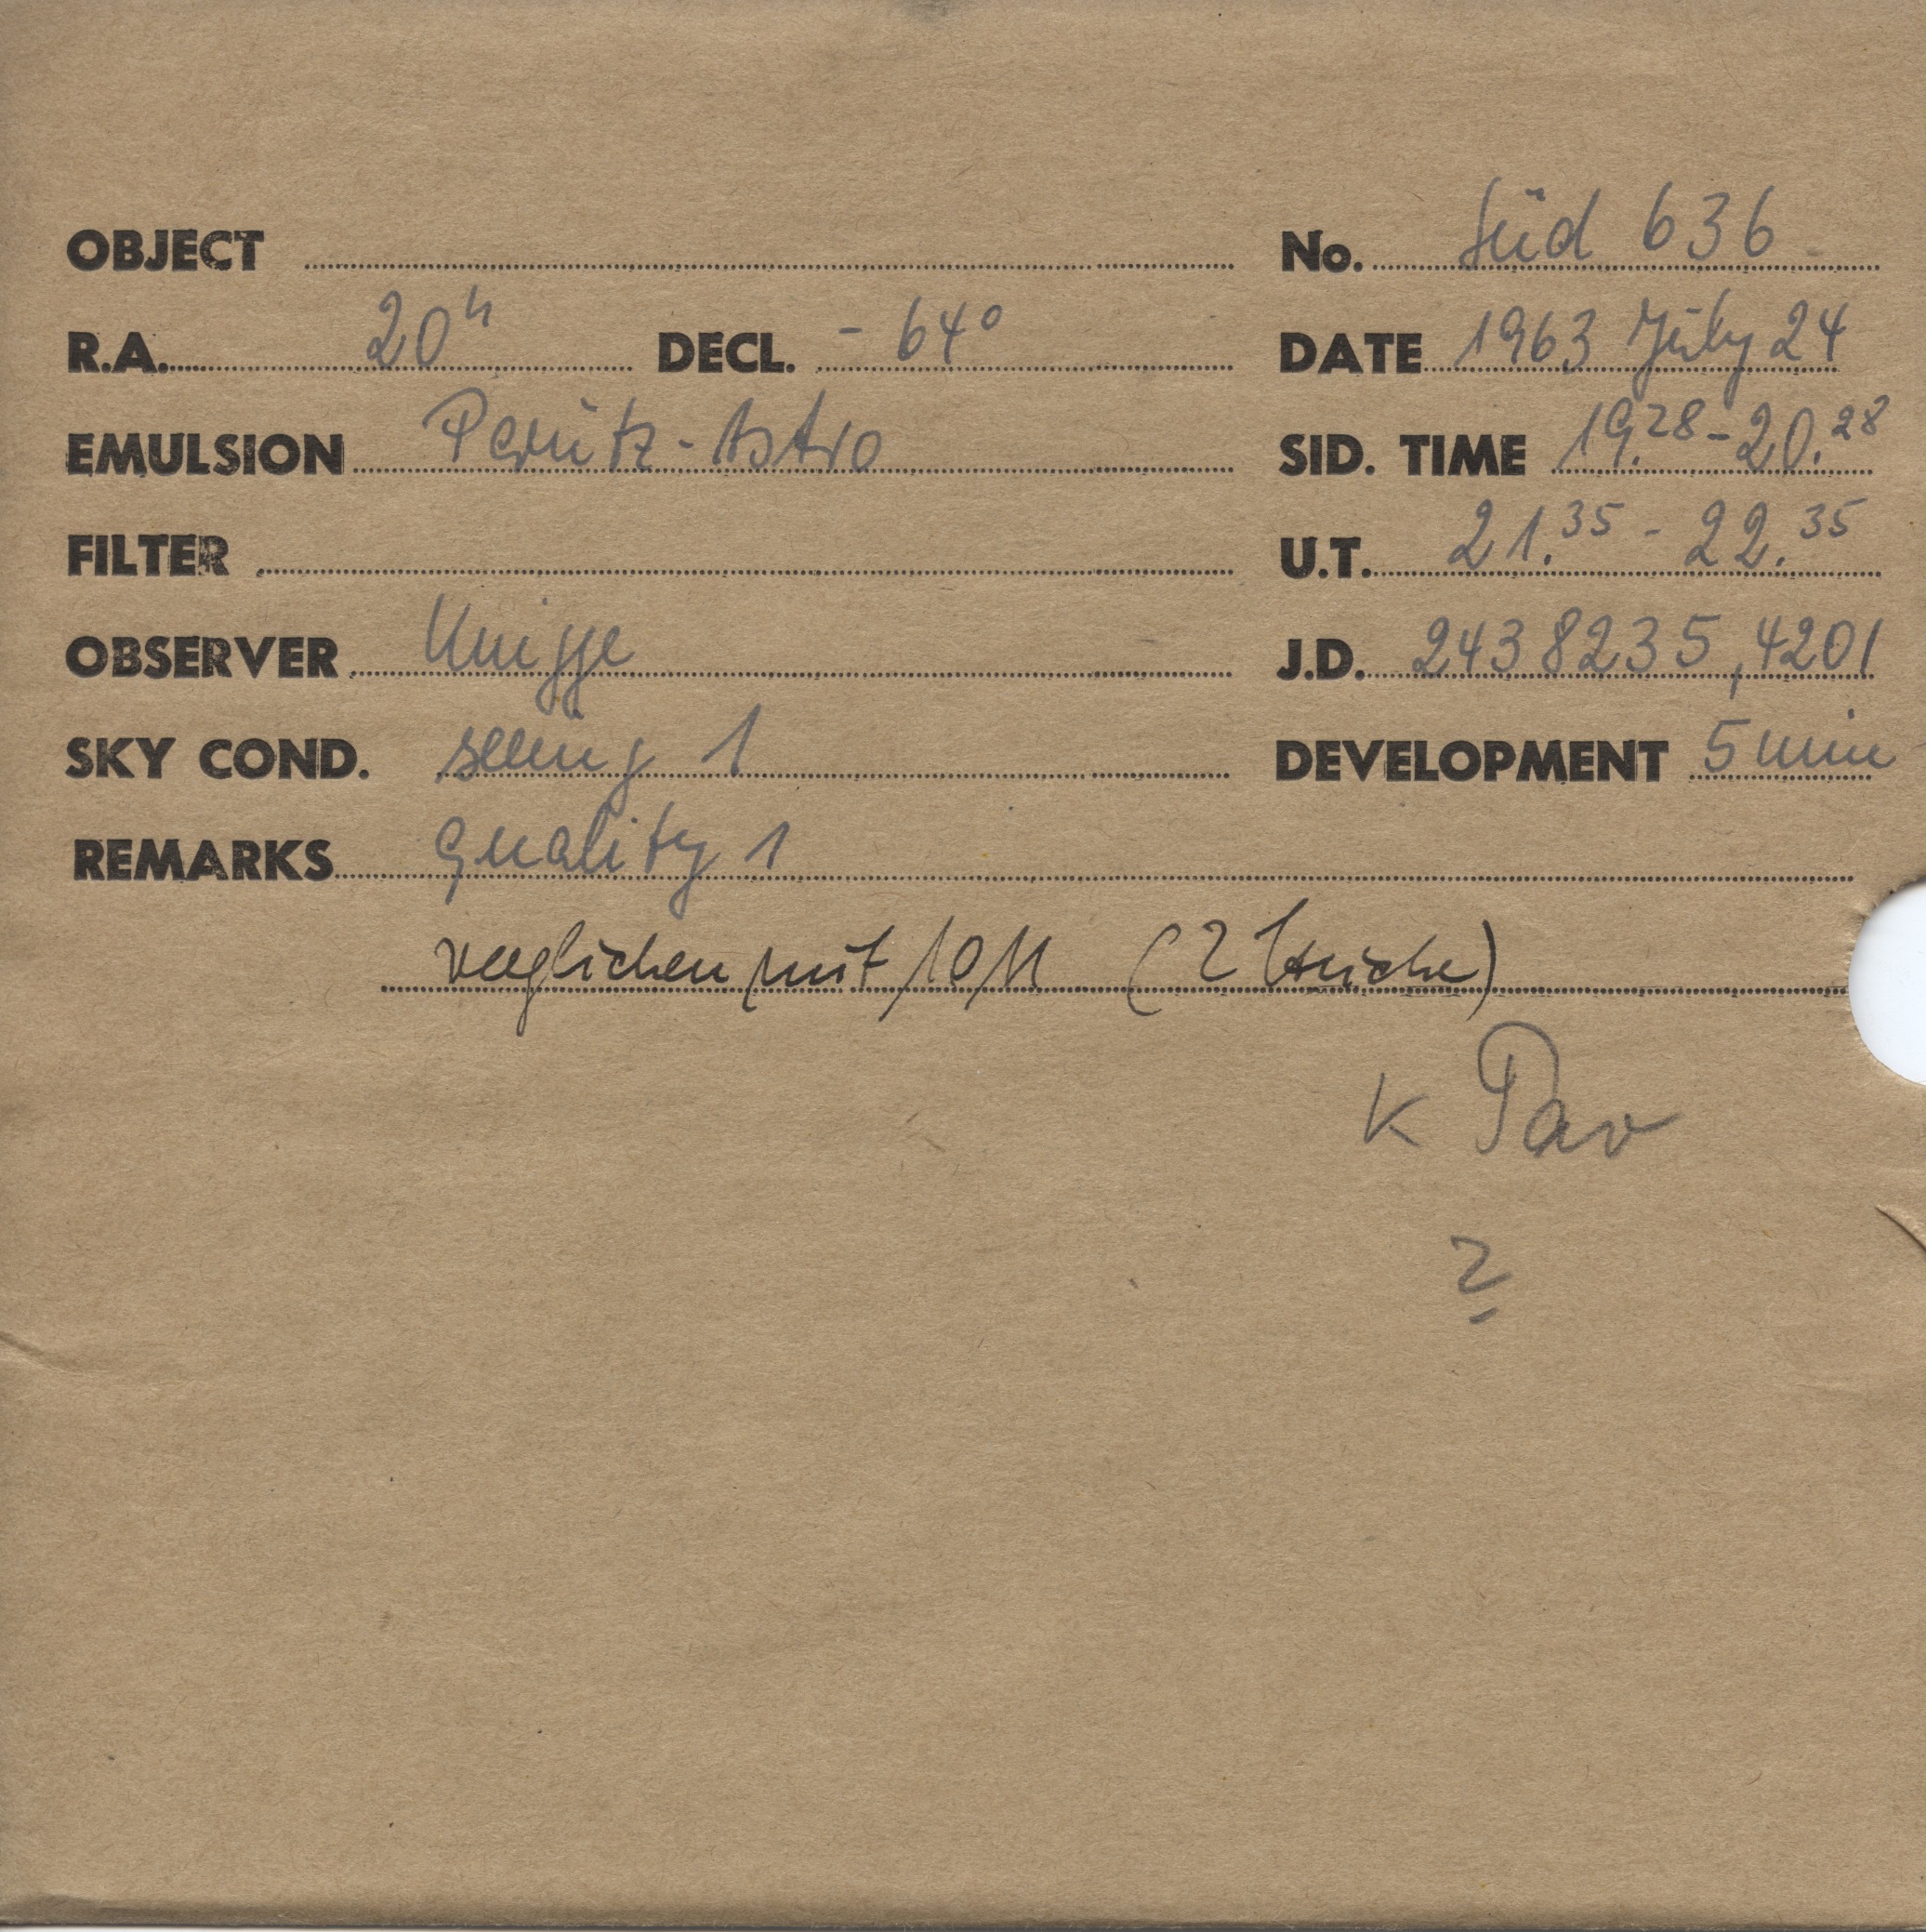 OBJECT No. Süd 636
R.A. 20h DECL. - 64° DATE 1963 July 24
EMULSION Perutz-Astro SID. TIME 19.28 - 20.28
FILTER U.T. 21.35 - 22.35
OBSERVER Knigge J.D. 2438235,4201
SKY COND. seeing 1 DEVELOPMENT 5 min
REMARKS quality 1
verglichen mit 1011 (2 Striche)
K Pav
2